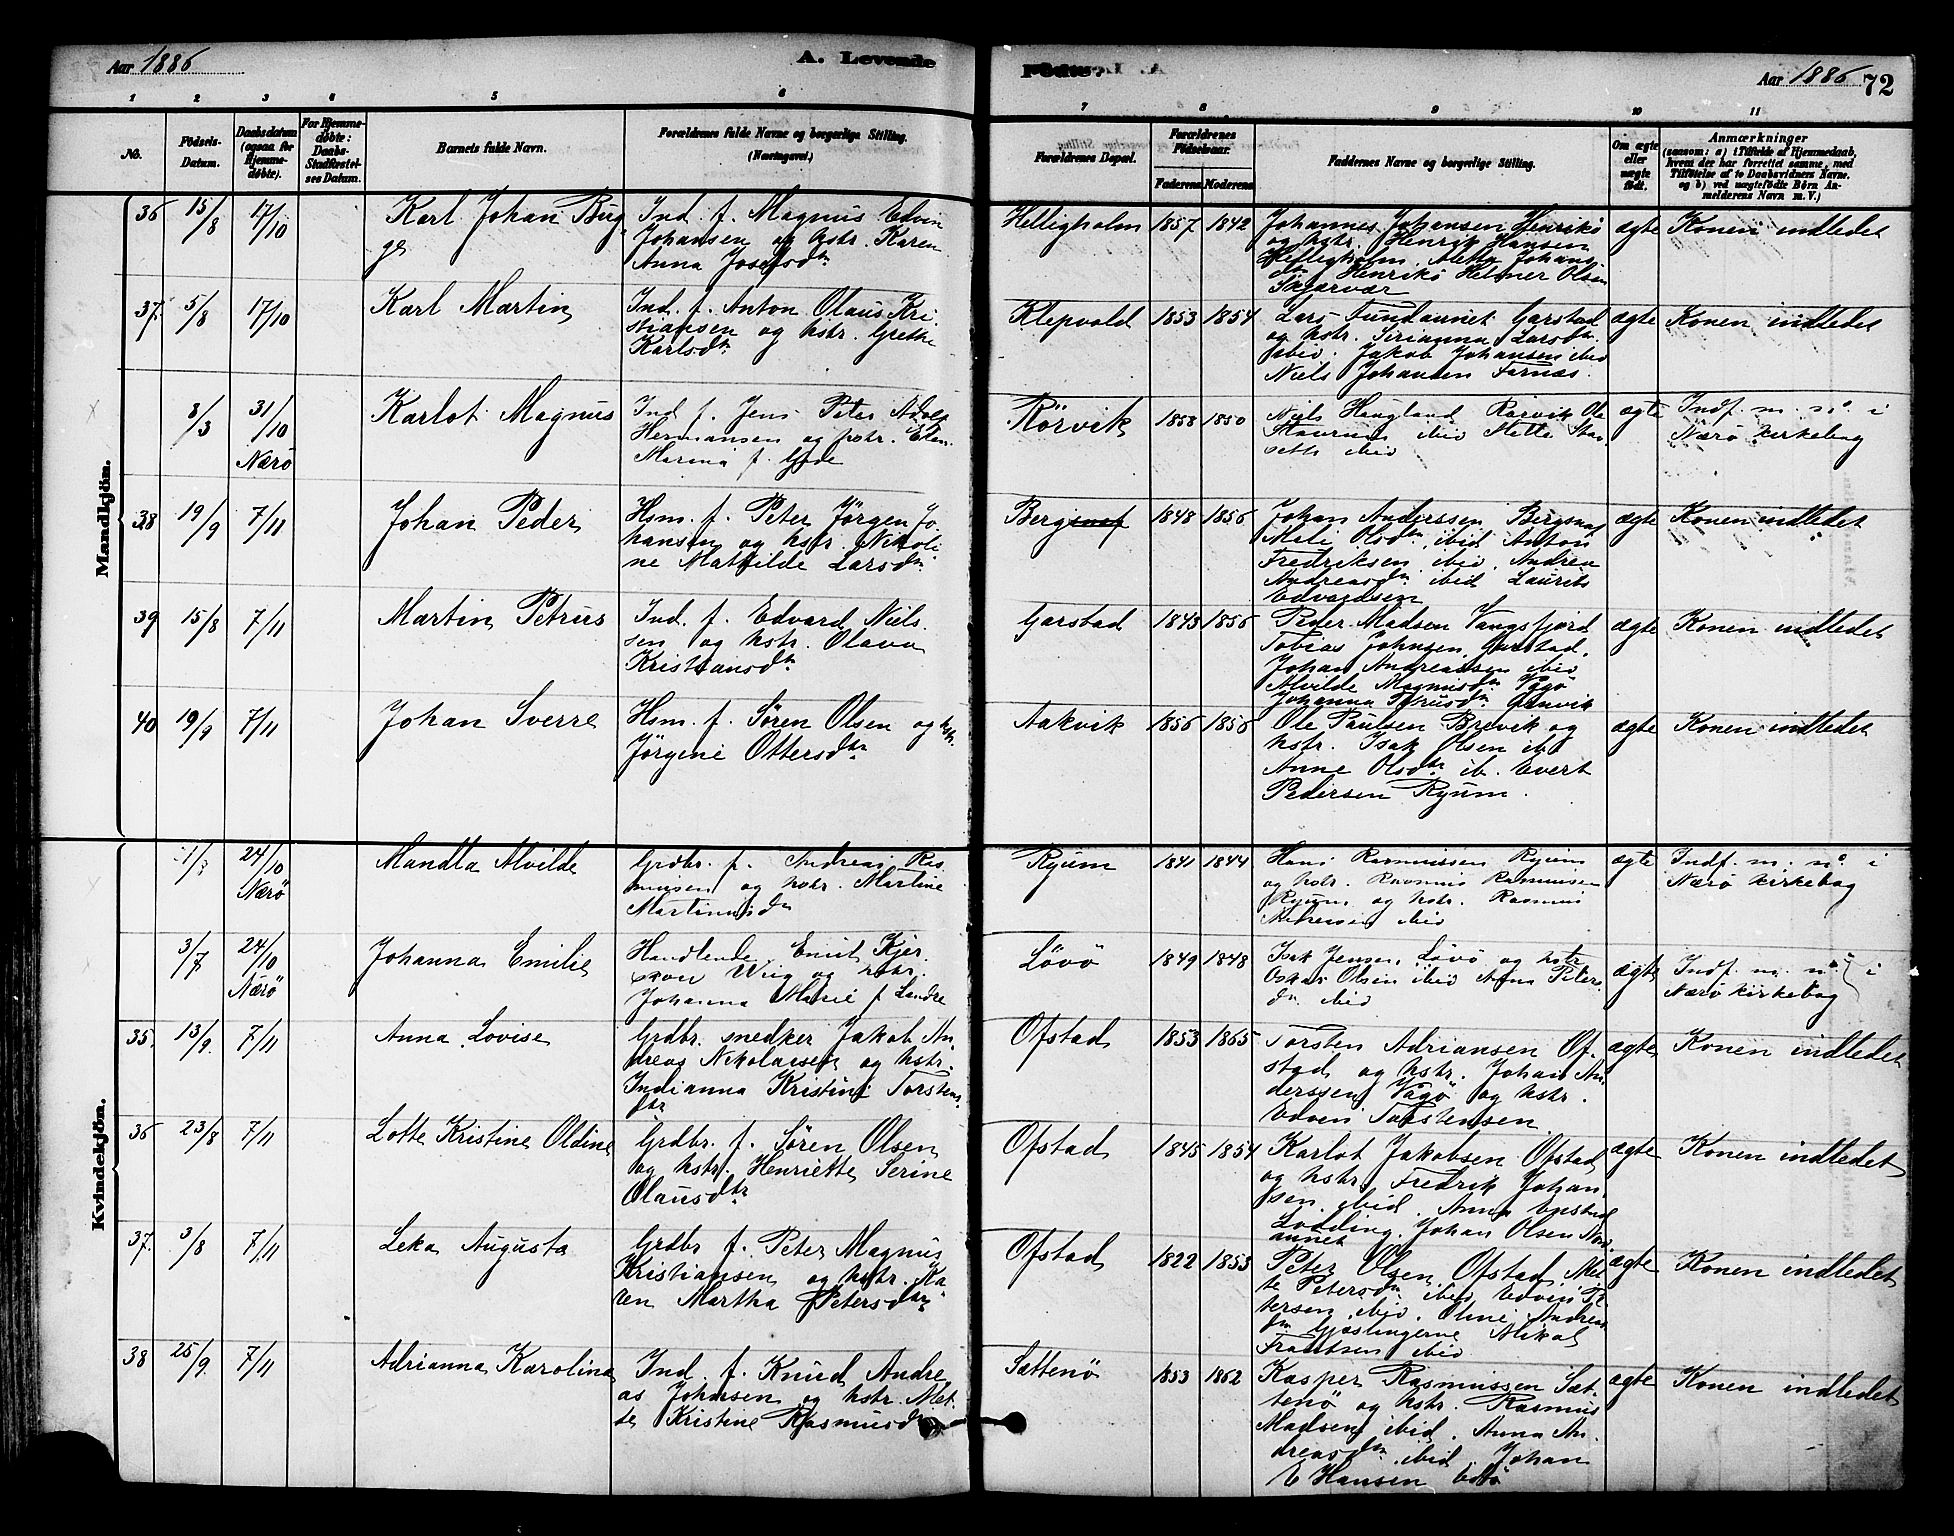 Aar 1886
A. Levende
Fødte.
Aar 1886
72
1 2 3 4 5 6 7 8 9 10 11
No.
Fødsels-
Datum.
Daabsdatum
(ogsaa for
Hjemme-
døbte).
For Hjemme-
døbte:
Daabs-
Stadfæstel-
ses Datum.
Barnets fulde Navn.
Forældrenes fulde Navne og borgerlige Stilling.
(Næringsvei.)
Forældrenes Bopæl.
Forældrenes
Fødselsaar.
Faderens Moderens
Faddernes Navne og borgerlige Stilling.
Om ægte
eller
uægte
født.
Anmærkninger
(saasom: a) i Tilfælde af Hjemmedaab,
hvem der har forrettet samme, med
Tilføielse af to Daabsvidners Navne.
og b) ved uægtefødte Børn An-
melderens Navn m. V.)
Mandkjön.
36 15/8 17/10 Karl Johan Bug
ge
Ind. f. Magnus Edvin
Johansen og hstr. Karen
Anna Josefsdtr
Helligholm 1857 1842
Johannes Johansen Henrikö
og hstr. Henrik Hansen
Helligholm, Aletta Johans
dtr Henrikö Helmer Olsen
Skjærvær
ægte Konen indledet
37. 5/8 17/10 Karl Martin
Ind. f. Anton Olaus Kri
stiansen og hstr. Grethe
Karlsdtr
Klepvold 1853 1854
Lars Garstad
og hstr. Serianna Larsdtr
ibid. Jakob Johansen ibid
Niels Johansen
ægte Konen indledet
8/3 31/10
Nærö
Karlot Magnus
Ind f. Jens Peter
Hermansen og hstr. Elen
Marina f.
Rörvik 1858 1850
Niels Haugland Rörvik Ole
ibid
ibid
ægte Indf. m. no. i
Nærö kirkebog
38 19/9 7/11 Johan Peder
Hsm. f. Peter Jørgen Jo
hansen og hstr. Nikoli
ne Mathilde Larsdtr
Bergsnef 1848 1856
Johan Anderssen Bergsnag
Mali Olsdtr ibid Anton
Fredriksen ibid. Andrea
Andreasdtr ibid Laurits
Edvardsen
ægte Konen indledet
39 15/8 7/11 Martin Petrus
Ind. f. Edvard Niels
sen og hstr. Olava
Kristiansdtr
Garstad 1843 1856
Peder Madsen Vangsfjord
Tobias Johnsen Garstad.
Johan Andreassen ibid
Alvilde Magnusdtr Vagö
Johanna Petrusdtr
ægte Konen indledet
40 19/9 7/11 Johan Sverre
Hsm. f. Søren Olsen og hstr.
Jörgine Ottersdtr
Aakvik 1856 1856
Ole Paulsen Brevik og
hstr. Isak Olsen ib.
Anne Olsdtr ib. Evert
Pedersen Ryum.
ægte Konen indledet
Kvindekjön.
24/10
Nærö
Mandta Alvilde
Grdbr. f. Andreas Ras
mussen og hstr. Martine
Martinusdtr
Ryum 1841 1844
Hans Rasmussen Ryum
og hstr. Rasmus Rasmussen
Ryum og hstr. Rasmus
ibid
ægte Indf. m. no. i
Nærö kirkebog
3/7 24/10
Nærö
Johanna Emilie
Handlende Emil Kjer
skow Wiig og hstr.
Johanna Marie f Landre
Lövö 1849 1848
Isak Jensen Lövö og hstr
Oskar Olsen ibid Anna Peters
dtr ibid
ægte Indf. m. no. i
Nærö kirkebog
35. 13/9. 7/11 Anna Lovise
Grdbr. snedker Jakob An
dreas Nikolaisen og hstr.
Indianna Kristine Torstens
dtr
Ofstad 1853 1865
Torsten Adriansen Of-
stad og hstr. Johan An
derssen Vagö og hstr.
Edvin Torstensen
ægte Konen indledet
36 23/8 7/11 Lotte Kristine Oldine
Grdbr. f. Søren Olsen
og hstr. Henriette Serine
Olausdtr
Ofstad 1845 1854
Karlot Jakobsen Ofstad
og hstr. Fredrik Johan
sen ibid. Anna
Lodding. Johan Olsen
aunet
ægte Konen indledet
37. 3/8 7/11 Leka Augusta
Grdbr f. Peter Magnus
Kristiansen og hstr. Ka
ren Martha Petersdtr
Ofstad 1822 1853
Peter Olsen Ofstad. Met
te Petersdtr ibid Edvin Pe
tersen ibid. Oline Andreas
dtr Gjæslingerne Mikal
Frantsen ibid
ægte Konen indledet
38 25/9. 7/11 Adrianna Karolina
Ind. f. Knud Andre
as Johnsen og hstr. Met
te Kristine Rasmusdtr
Sættenö 1853 1862
Kasper Rasmussen Sæt-
tenö og hstr. Rasmus
Madsen ibid. Anna An
dreasdtr ibid. Johan
E Hansen
ægte Konen indledet